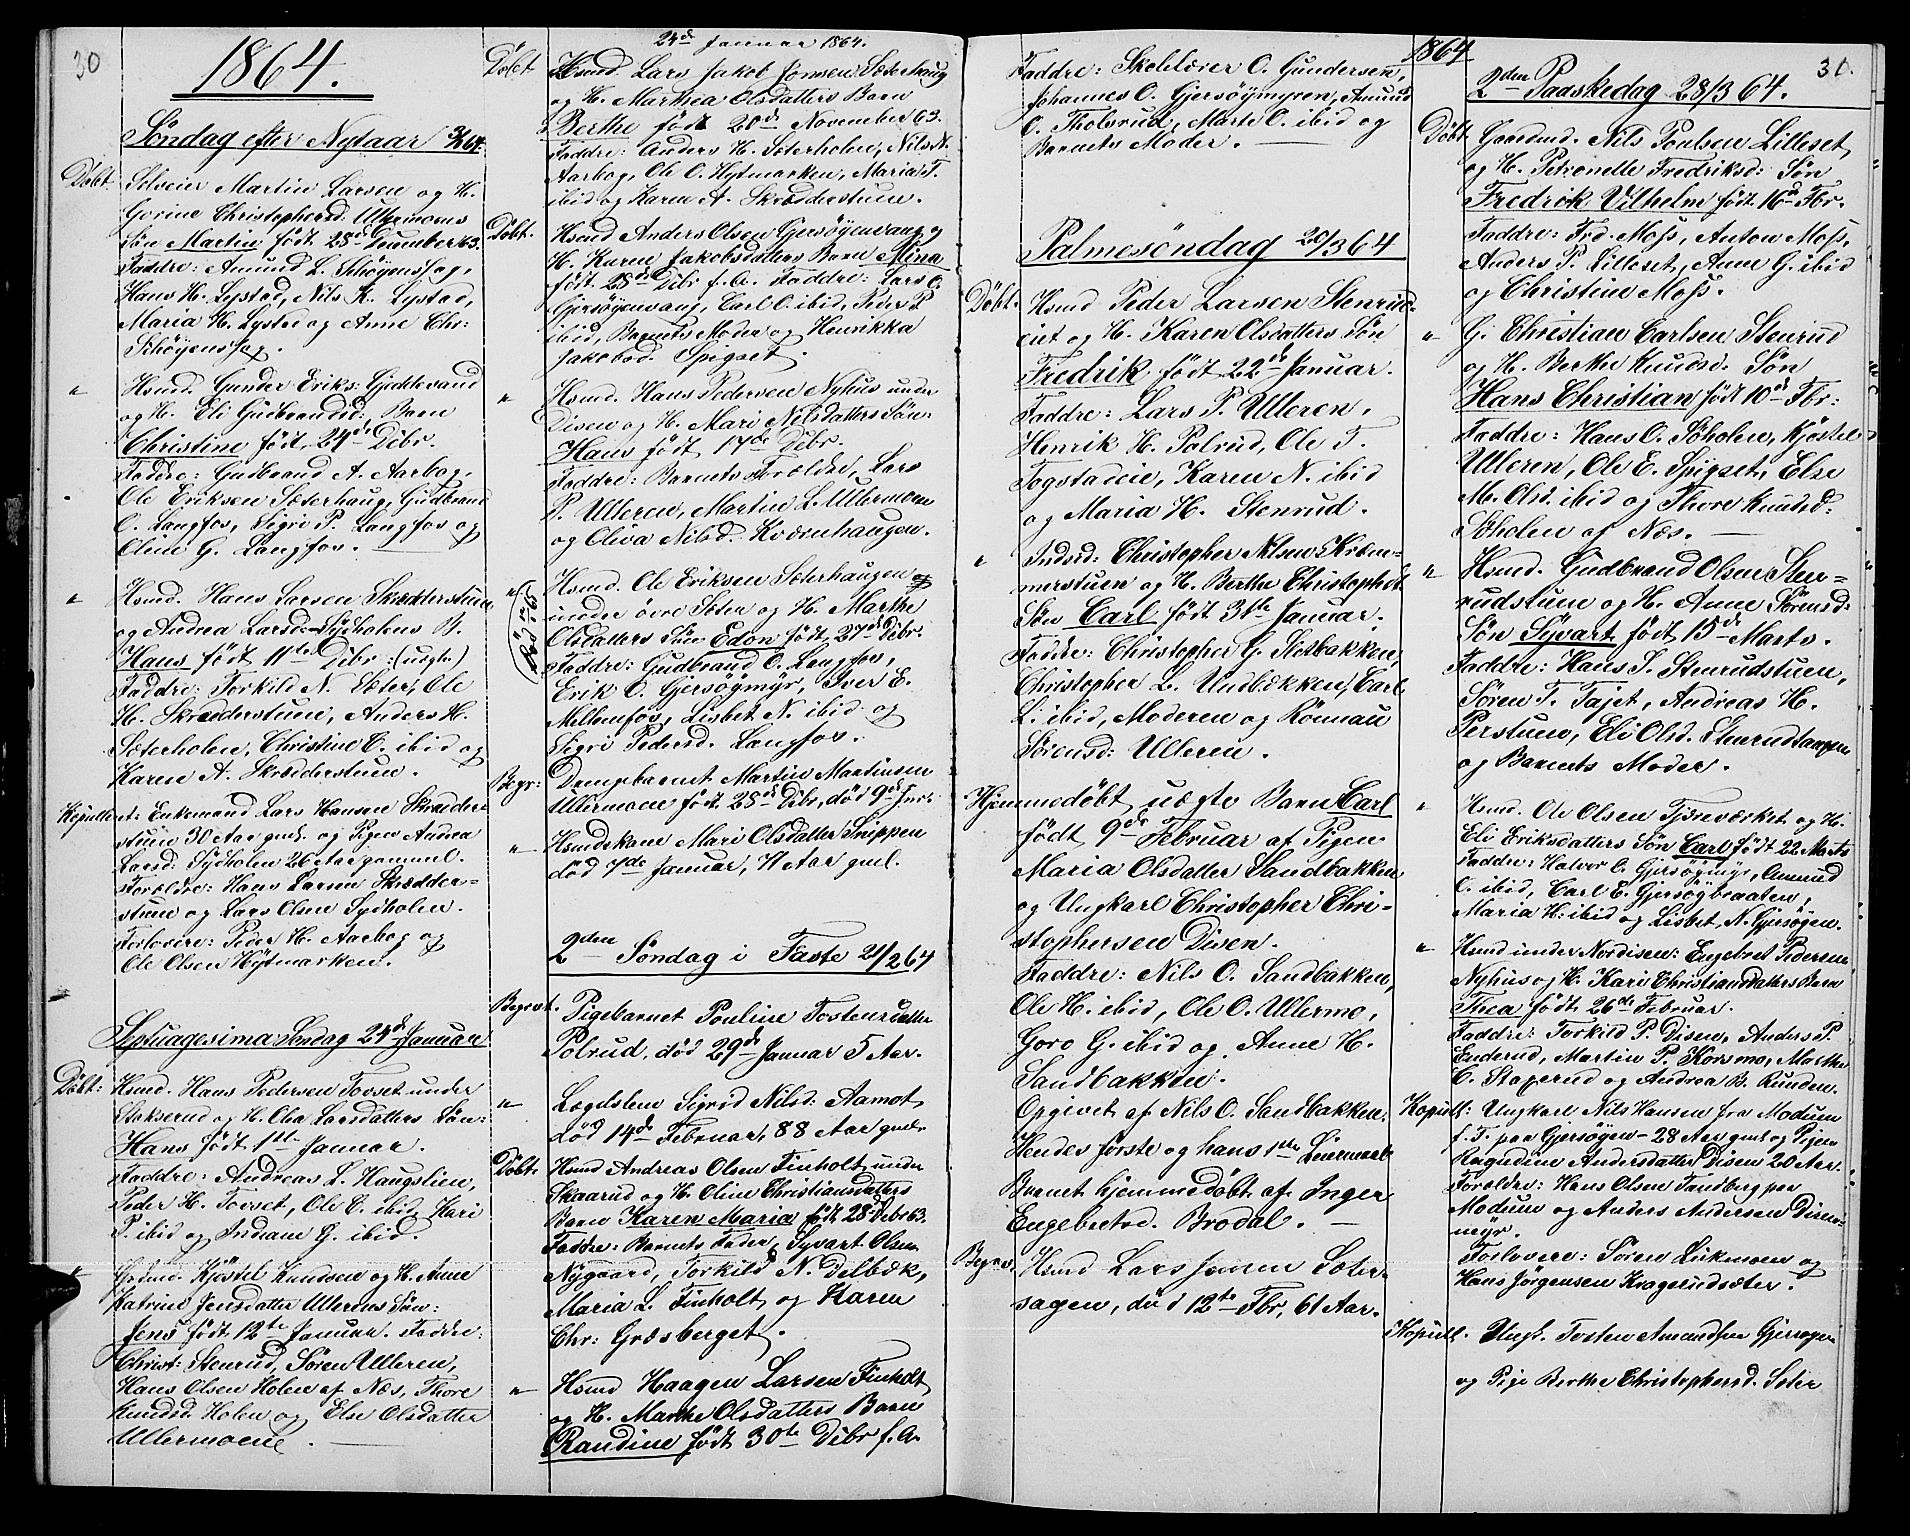 30
1864.
Søndag efter Nytaar 3/1 64.
Døbt Selveier Martin Larsen og H.
Gorine Christophersd. Ullermoens
Søn Martin født 28de December 63.
Faddre: Amund L. Schøyenssag,
Hans H. Lystad, Nils K. Lystad,
Maria H. Lystad og Anne Chr:
Schøyenssag.
" Hsmd. Gunder Eriks: Gjeddevand
og H. Eli Gudbrandsd: Barn
Christine født 24de Debr.
Faddre: Gudbrand A. Aarbog,
Ole Eriksen Sæterhaug, Gudbrand
O. Langfos, Sigri P. Langfos og
Oline G. Langfos.
" Hsmd. Hans Larsen Skrædderstuen
og Andrea Larsd. Sydholens B.
Hans født 11te Debr: (uægte)
Faddre: Torkild N. Sæter, Ole
H. Skrædderstuen, Anders H.
Sæterholen, Christine O. ibid og
Karen A. Skrædderstuen.
Kopulleret: Enkemand Lars Hansen Skrædder-
stuen 30 Aar gml. og Pigen Andrea
Larsd: Sydholen 26 Aar gammel.
Forældre: Hans Larsen Skrædder-
stuen og Lars Olsen Sydholen.
Forlovere: Peder H. Aarbog og
Ole Olsen Hytmarken.
Septuagesima Søndag 24de Januar
Døbt: Hsmd. Hans Pedersen Tovset under
Stakserud og H. Olea Larsdatters Søn:
Hans født 1ste Januar.
Faddre: Andreas L. Haugslien,
Peder H. Tovset, Ole O. ibid, Kari
P. ibid og Indiane G. ibid.
" Grdmd. Kjøstel Knudsen og H. Anne
Katrine Jensdatter Ullerens Søn:
Jens født 12te Januar. Faddre:
Christ: Stenrud, Søren Ulleren,
Hans Olsen Holen af Næs, Thore
Knudsd. Holen og Else Olsdatter
Ullermoene.
24de Januar 1864.
Døbt Hsmd. Lars Jakob Jonsen Sæterhaug
og H. Marthea Olsdatters Barn
Berthe født 20de November 63.
Faddre: Anders H. Sæterholen, Nils N.
Aarbog, Ole O. Hytmarken, Maria T.
ibid og Karen A. Skrædderstuen.
Døbt. Hsmd Anders Olsen Gjersøyenvang og
H. Karen Jakobsdatters Barn Mina
født 28de Debr f. A. Faddre: Lars O.
Gjersøyenvang, Carl O. ibid, Peder P.
ibid, Barnets Moder og Henrikka
Jakobsd. Spigset.
" Hsmd. Hans Pedersen Nyhus under
Disen og H. Mari Nilsdatters Søn:
Hans født 17de Debr.
Faddre: Barnets Forældre, Lars
P. Ulleren, Martin L. Ullermoen
og Oliva Nilsd. Kværnhaugen.
" Hsmd. Ole Eriksen Sæterhaugen
under øvre Sæter og H. Marthe
Olsdatters Søn Edon født 27de Debr.
Faddre: Gudbrand O. Langfos,
Erik O. Gjersøymyr, Iver E.
Mellemfos, Lisbet N. ibid og
Sigri Pedersd. Langfos.
Begr: Drengebarnet Martin Martinsen
Ullermoen født 28de Debr, død 9de Janr.
" Hsmdskone Mari Olsdatter Snippen
død 7de Januar, 71 Aar gml.
2den Søndag i Faste 21/2 64
Begravet. Pigebarnet Pauline Tostensdatter
Polrud, død 29de Januar 5 Aar.
" Lægdslem Sigrid Nilsd. Aamot,
død 14de Februar, 88 Aar gml.
Døbt. Hsmd Andreas Olsen Finholt under
Skaarud og H. Oline Christiansdatters
Barn Karen Maria født 28 Debr 63.
Faddre: Barnets Fader, Syvart Olsen
Nygaard, Torkild N. Delbæk,
Maria L. Finholt og Karen
Chr: Græsberget.
" Hsmd Haagen Larsen Finholt
og H. Marthe Olsdatters Barn
Randine født 30te Debr f. A.
Faddre: Skolelærer O. Gundersen,
Johannes O. Gjersøymyren, Amund
O. Tholsrud, Marte O. ibid og
Barnets Moder.
Palmesøndag 20/3 64
Døbt. Hsmd Peder Larsen Stenrud-
eiet og H. Karen Olsdatters Søn
Fredrik født 22de Januar.
Faddre: Lars P. Ulleren,
Henrik H. Polrud, Ole T.
Togstadeie, Karen N. ibid
og Maria H. Stenrud.
" Indsd: Christopher Nilsen Kræm-
merstuen og H. Berthe Christophdt.
Søn Carl født 31te Januar.
Faddre: Christopher G. Sletbakken,
Christopher L. Undbakken, Carl
L. ibid, Moderen og Rønnau
Sørensd: Ulleren.
Hjemmedøbt uægte Barn Carl
født 9de Februar af Pigen
Maria Olsdatter Sandbakken
og Ungkarl Christopher Chri-
stophersen Disen.
Faddre: Nils O. Sandbakken,
Ole H. ibid, Ole O. Ullermo,
Goro G. ibid og Anne H.
Sandbakken.
Opgivet af Nils O. Sandbakken.
Hendes første og hans 1ste Leiermaal
Barnet hjemmedøbt af Inger
Engebretsd. Brodal.
Begrav. Hsmd Lars Jensen Sæter-
sagen, død 12te Fbr, 61 Aar.
1864
31.
2den Paaskedag 28/3 64.
Døbt Gaardmd. Nils Poulsen Lilleset
og H. Petronelle Fredriksd: Søn
Fredrik Vilhelm født 16de Fbr.
Faddre: Frd. Moss, Anton Moss,
Anders P. Lilleset, Anne G. ibid
og Christine Moss.
" G. Christian Carlsen Stenrud
og H. Berthe Knudsd. Søn
Hans Christian født 10de Fbr:
Faddre: Hans O. Søholen, Kjøstel
Ulleren, Ole E. Spigset, Else
M. Olsd. ibid og Thore Knudsd:
Søholen af Næs.
" Hsmd. Gudbrand Olsen Sten-
rudstuen og H. Anne Sørensd:
Søn Syvart født 15de Marts.
Faddre: Hans S. Stenrudstuen,
Søren T. Tajet, Andreas H.
Perstuen, Eli Olsd. Stenrudtangen
og Barnets Moder.
" Hsmd. Ole Olsen Tjæreværket og H.
Eli Eriksdatters Søn Carl født 22 Marts
Faddre: Halvor O. Gjersøymyr, Amund
O. ibid, Carl E. Gjersøybraaten,
Maria H. ibid og Lisbet N. Gjersøyen.
" Hsmd under Nordisen: Engebret Pedersen
Nyhus og H. Kari Christiansdatters Barn
Thea født 26de Februar.
Faddre: Torkild P. Disen, Anders P.
Enderud, Martin P. Korsmo, Marthe
C. Staperud og Andrea B. Runden.
Kopull: Ungkarl Nils Hansen fra Modum
f. T. paa Gjersøyen - 28 Aar gml og Pigen
Ragndine Andersdatter Disen 20 Aar.
Forældre: Hans Olsen Tandberg paa
Modum og Anders Andersen Disen-
myr.
Forlovere: Søren Lukmoen og
Hans Jørgensen Kragerudsæter.
Kopull. Ungk. Tosten Amundsen Gjersøyen
og Pige Berthe Christophersd. Sæter